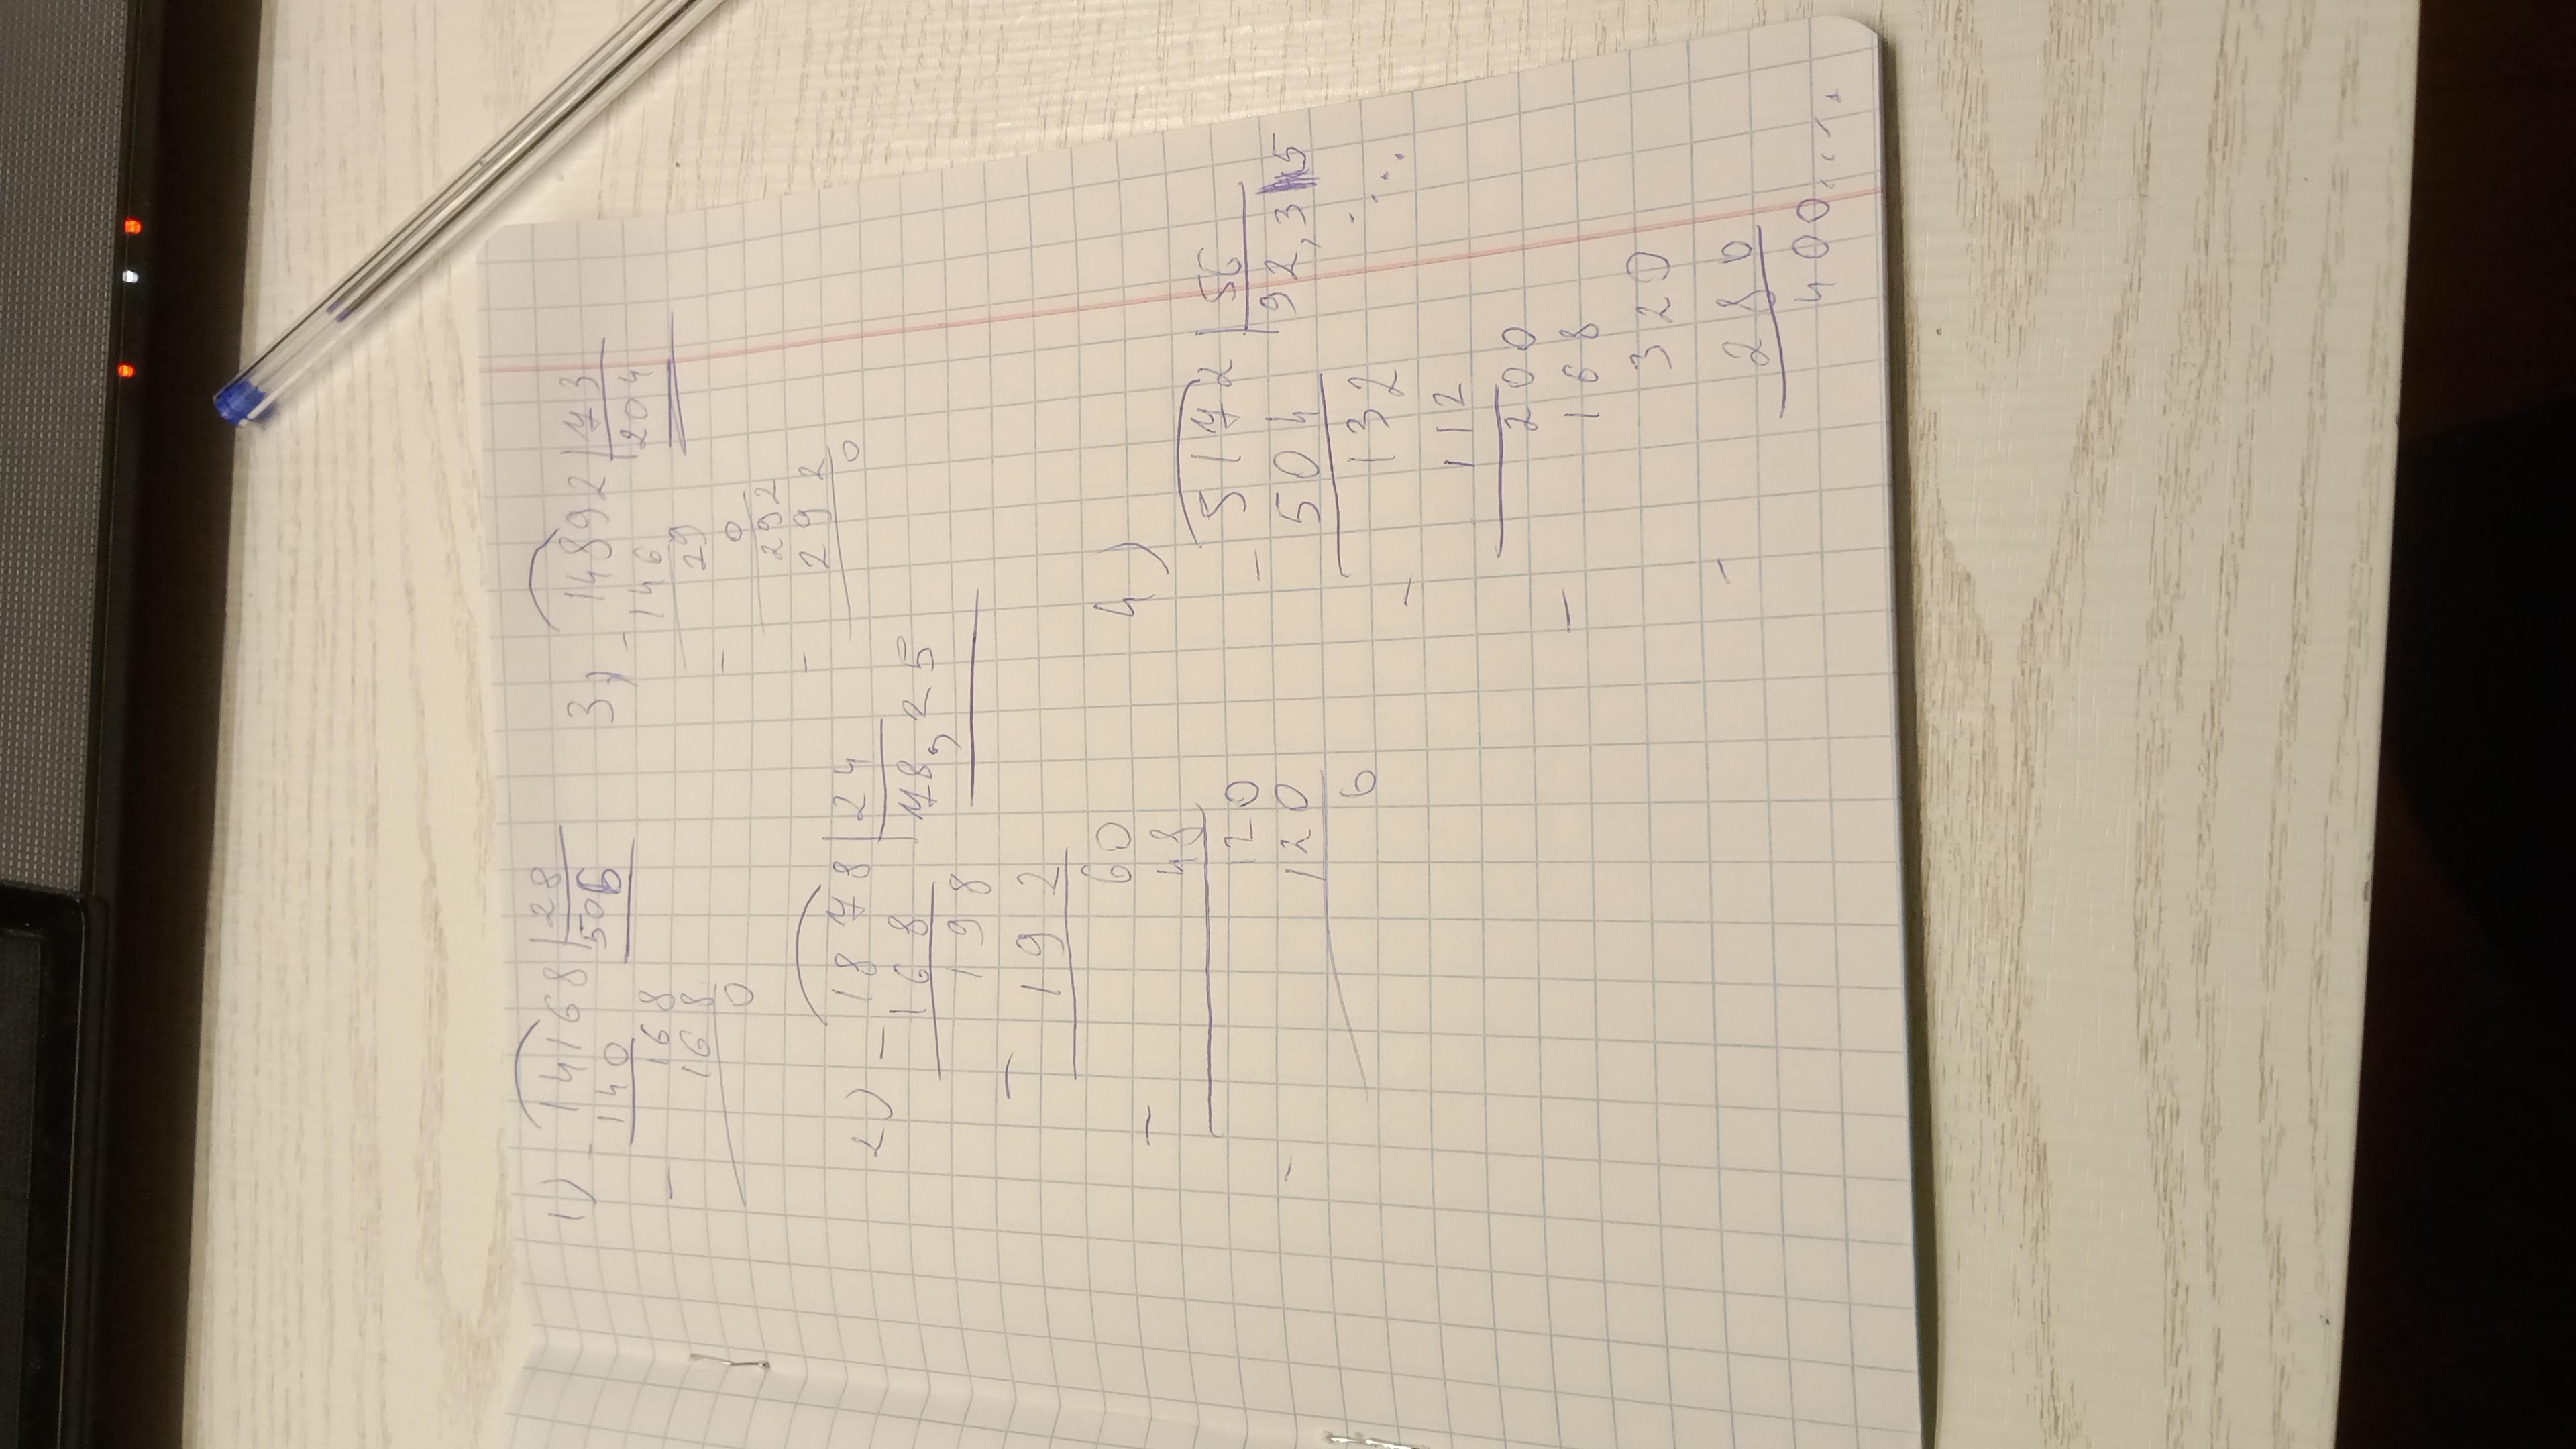 1) - 14168 | 28
140 | 506
- 168
168
0
2) - 1878 | 24
168 | 78,25
198
- 192
60
- 48
120
- 120
0
3) - 14892 | 73
146 | 204
29
- 0
292
- 292
0
4)
- 5172 | 56
504 | 92,35
132 ...
- 112
200
- 168
320
- 280
400....